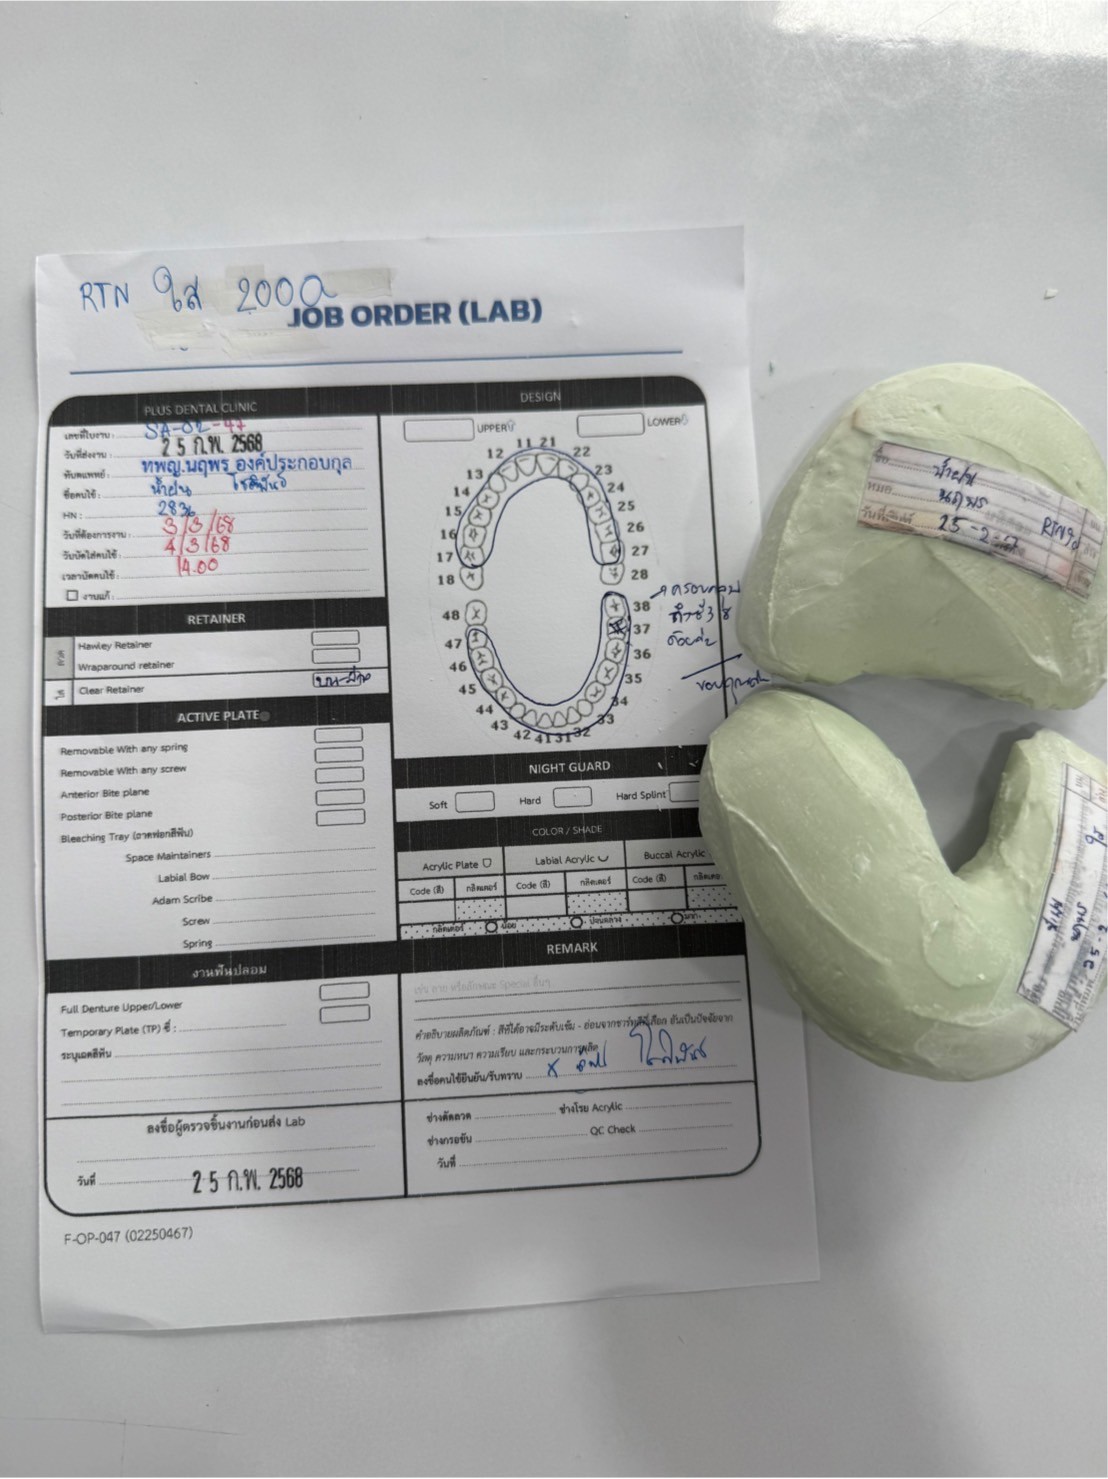 RTN ใส 2000
JOB ORDER (LAB)
PLUS DENTAL CLINIC
เลขที่ใบงาน: SA-02-47
วันที่ส่งงาน: 25 ก.พ. 2568
ทันตแพทย์: ทพญ.นฤพร องค์ประกอบกุล
ชื่อคนไข้: น้ำฝน
HN: 2836
วันที่ต้องการงาน: 3/3/68
วันนัดใส่คนไข้: 4/3/68
เวลานัดคนไข้: 14.00
งานแก้:
RETAINER
Hawley Retainer
Wraparound retainer
Clear Retainer บน-ล่าง
ACTIVE PLATE
Removable With any spring
Removable With any screw
Anterior Bite plane
Posterior Bite plane
Bleaching Tray (ถาดฟอกสีฟัน)
Space Maintainers
Labial Bow
Adam Scribe
Screw
Spring
งานฟันปลอม
Full Denture Upper/Lower
Temporary Plate (TP) ซี่:
ระบุเฉดสีฟัน
ลงชื่อผู้ตรวจชิ้นงานก่อนส่ง Lab
วันที่ 25 ก.พ. 2568
DESIGN
UPPER LOWER
11 21
12 22
13 23
14 24
15 25
16 26
17 27
18 28
48 38
47 37
46 36
45 35
44 34
43 33
42 41 31 32
ครอบคลุม
ถึงซี่ 38
ด้วยค่ะ
ขอบคุณค่ะ
NIGHT GUARD
Soft Hard Hard Splint
COLOR / SHADE
Acrylic Plate Labial Acrylic Buccal Acrylic
Code (สี) กลิตเตอร์ Code (สี) กลิตเตอร์ Code (สี) กลิตเตอร์
กลิตเตอร์ น้อย ปานกลาง มาก
REMARK
เช่น ลาย หรือลักษณะ Special อื่นๆ
คำอธิบายผลิตภัณฑ์ : สีที่ได้อาจมีระดับเข้ม - อ่อนจากชาร์ทสีที่เลือก อันเป็นปัจจัยจาก
วัสดุ ความหนา ความเรียบ และกระบวนการผลิต
ลงชื่อคนไข้ยืนยัน/รับทราบ x
ช่างดัดลวด ช่างโรย Acrylic
ช่างกรอขัด QC Check
วันที่
F-OP-047 (02250467)
ชื่อ น้ำฝน
หมอ นฤพร RTN ใส
25-2-